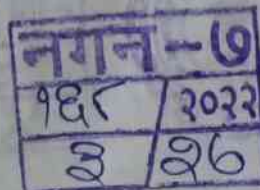 नगन - ७
१६८ / २०२२
३ / २७